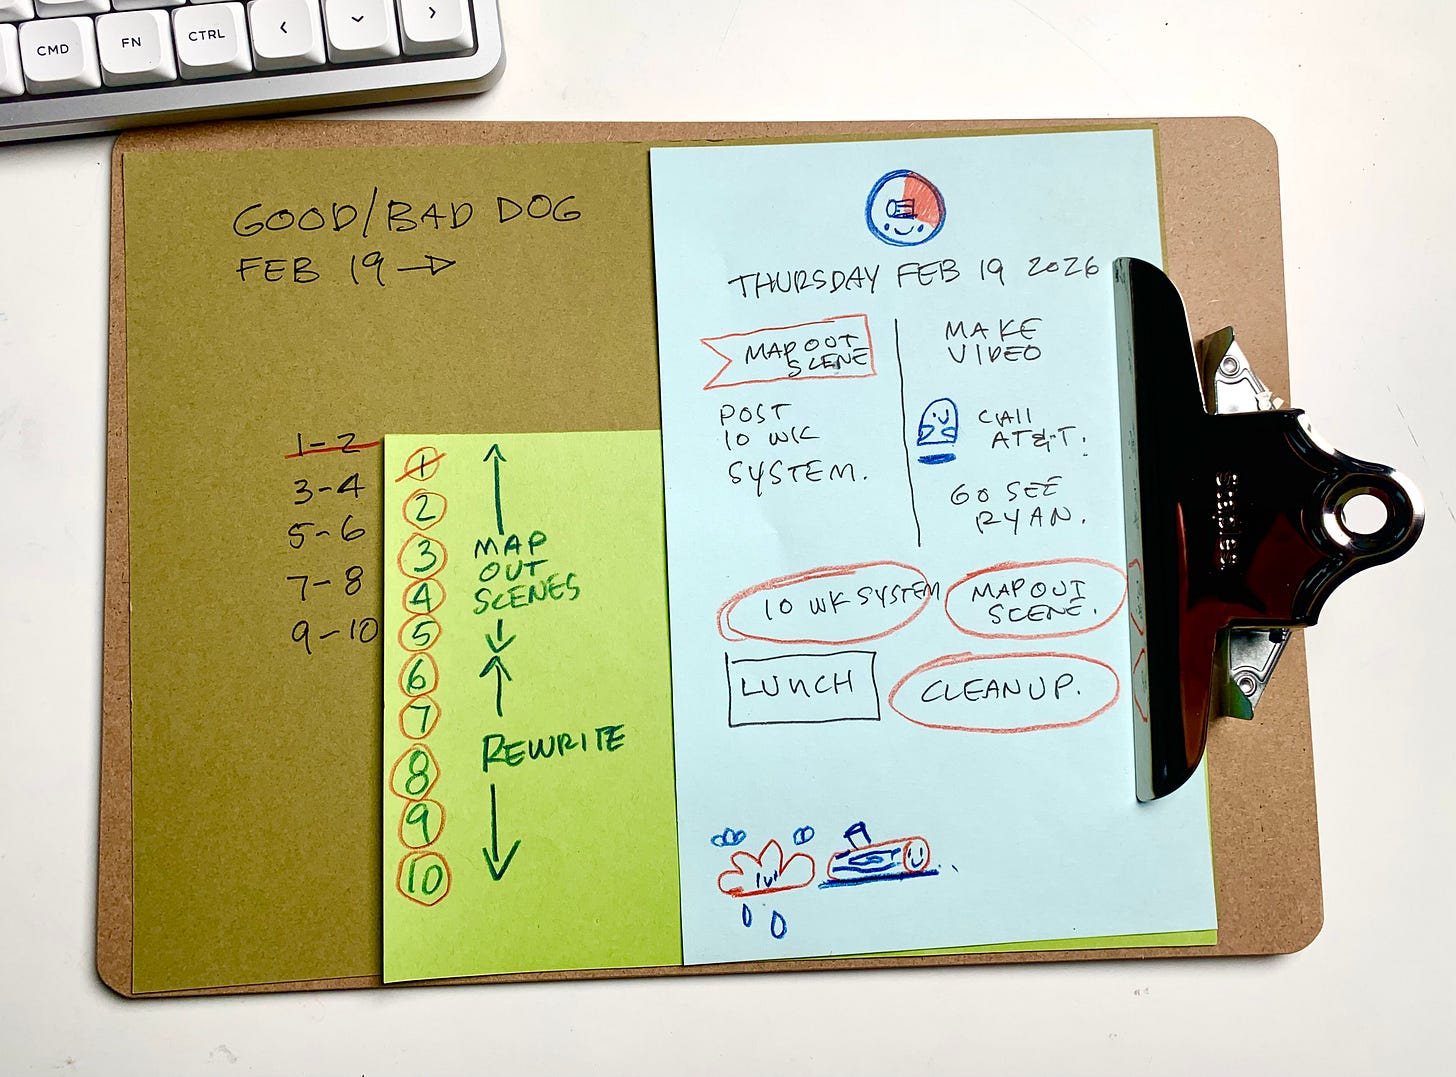 CMD
FN
CTRL
GOOD/BAD DOG
FEB 19 →
1-2
3-4
5-6
7-8
9-10
1
2
3
4
5
6
7
8
9
10
MAP
OUT
SCENES
REWRITE
THURSDAY FEB 19 2026
MAP OUT
SCENE
POST
10 WK
SYSTEM.
MAKE
VIDEO
CALL
AT&T.
GO SEE
RYAN.
10 WK SYSTEM
MAP OUT
SCENE.
LUNCH
CLEANUP.